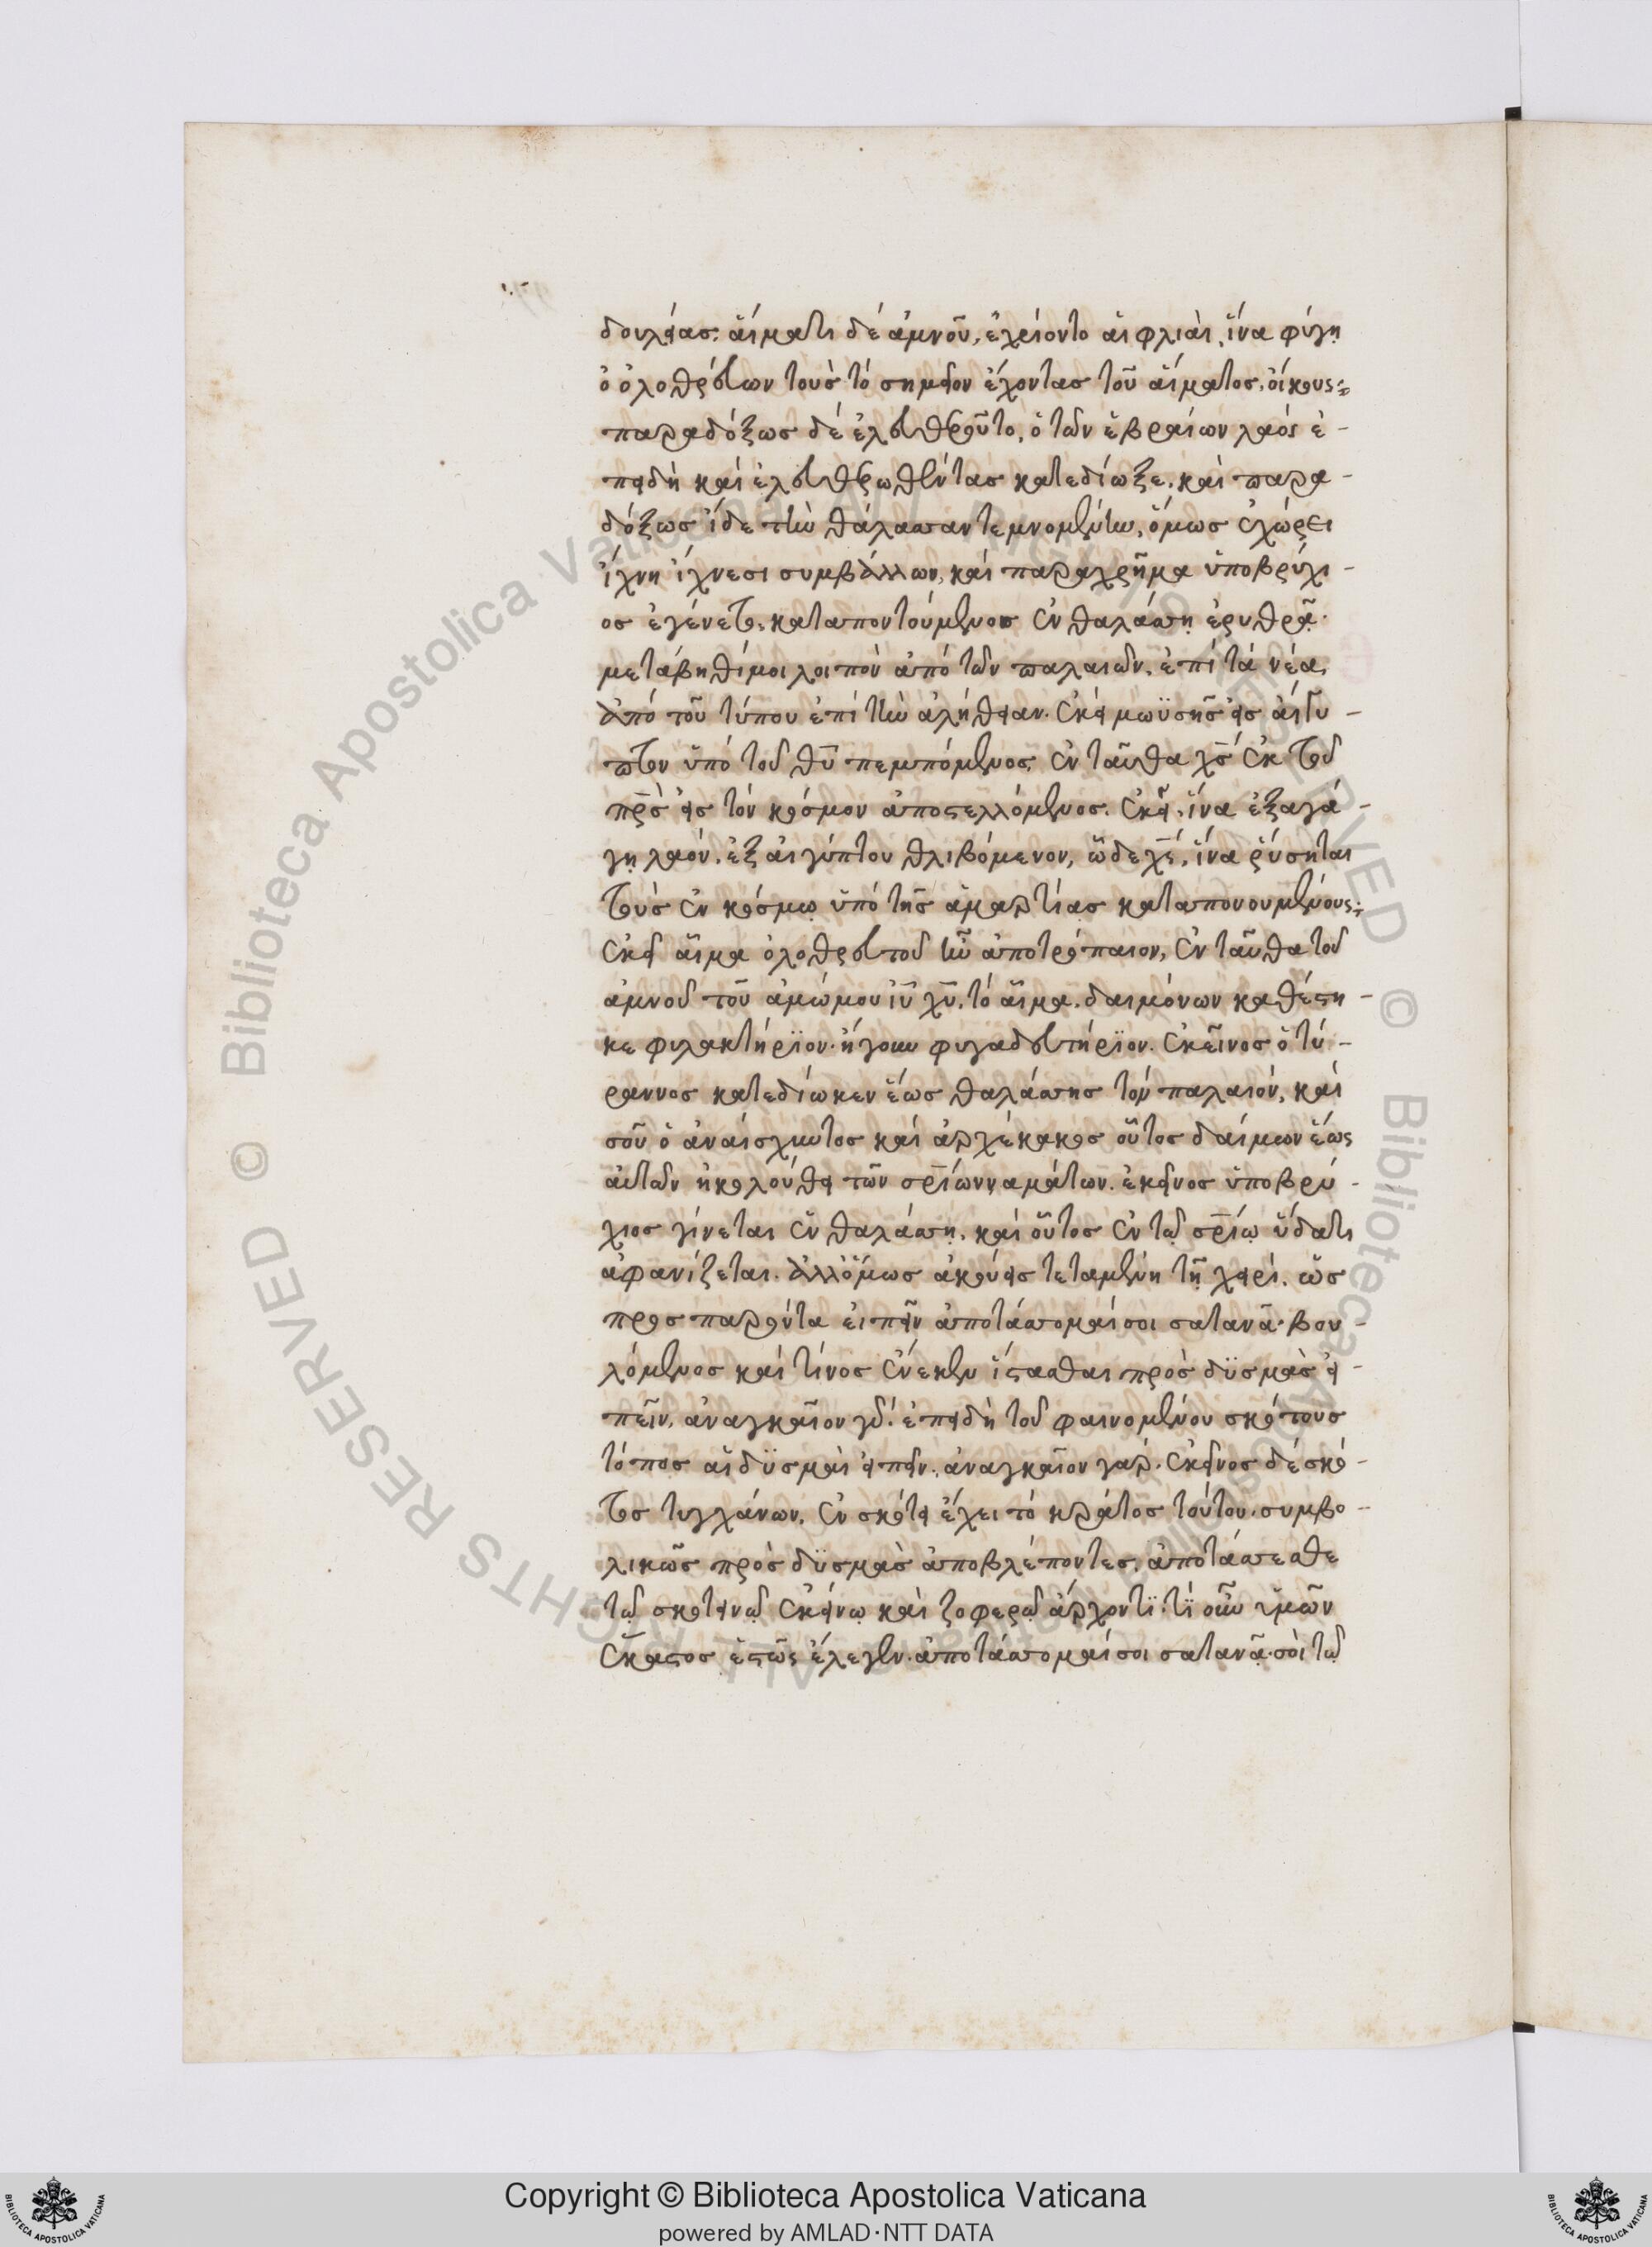 δουλείας. αἵματι δέ ἀμνοῦ, ἐχρίοντο αἱ φλιαὶ, ἵνα φύγῃ
ὁ ὀλοθρεύων τοὺς τό σημεῖον ἔχοντας τοῦ αἵματος, οἴκους:
παραδόξως δέ ἐλευθεροῦτο, ὁ τῶν ἑβραίων λαός ἐ-
πειδὴ καί ἐλευθερωθέντας κατεδίωξε, καὶ παρα-
δόξως ἴδε τὴν θάλασσαν τεμνομένην, ὅμως ἐχώρει
ἴχνη ἴχνεσι συμβάλλων, καί παραχρῆμα ὑποβρύχι-
ος ἐγένετο, καταποντούμενος ἐν θαλάσσῃ ἐρυθρᾷ.
μετάβηθί μοι λοιπόν ἀπό τῶν παλαιῶν, ἐπί τά νέα,
ἀπό τοῦ τύπου ἐπί τὴν ἀλήθειαν. ἐκεῖ μωϋσῆς εἰς αἴγυ-
πτον ὑπό τοῦ θ̅υ̅ πεμπόμενος, ἐνταῦθα χ̅ς̅ ἐκ τοῦ
π̅ρ̅ς̅ εἰς τόν κόσμον ἀποστελλόμενος. ἐκεῖ, ἵνα ἐξαγά-
γῃ λαόν, ἐξ αἰγύπτου θλιβόμενον, ὧδε χ̅ς̅, ἵνα ῥύσηται
τοὺς ἐν κόσμῳ ὑπό τῆς ἁμαρτίας καταπονουμένους:
ἐκεῖ αἷμα ὀλοθρευτοῦ ἦν ἀποτρόπαιον, ἐνταῦθα τοῦ
ἀμνοῦ τοῦ ἀμώμου ι̅υ̅ χ̅υ̅, τό αἷμα, δαιμόνων καθέστη-
κε φυλακτήρϊον. ἤγουν φυγαδευτήρϊον. ἐκεῖνος ὁ τύ-
ραννος κατεδίωκεν ἕως θαλάσσης τόν παλαιόν, καί
σοῦ ὁ ἀναίσχυντος καί ἀρχέκακος οὗτος δαίμων ἕως
αὐτῶν ἠκολούθει τῶν σ̅ρ̅ίων ναμάτων. ἐκεῖνος ὑποβρύ-
χιος γίνεται ἐν θαλάσσῃ, καί οὗτος ἐν τῷ σ̅ρ̅ίῳ ὕδατι
ἀφανίζεται. ἀλλ' ὅμως ἀκούεις τεταμένῃ τῇ χειρί, ὡς
προς παρόντα εἰπεῖν ἀποτάσσομαί σοι σατανᾶ. βου-
λόμενος καί τίνος ἕνεκεν ἵστασθαι πρός δϋσμάς εἰ-
πεῖν, ἀναγκαῖον γάρ. ἐπειδὴ τοῦ φαινομένου σκότους
τόπος αἱ δϋσμαὶ εἰπεῖν. ἀναγκαῖον γάρ. ἐκεῖνος δέ σκό-
τος τυγχάνων, ἐν σκότει ἔχει τό κράτος τούτου. συμβο-
λικῶς πρός δϋσμάς ἀποβλέποντες, ἀποτάσσεσθε
τῷ σκοτεινῷ ἐκείνῳ καὶ ζοφερῷ ἄρχοντϊ. τϊ οὖν ὑμῶν
ἕκαστος ἑστῶς ἔλεγεν. ἀποτάσσομαί σοι σατανᾶ. σοί τῷ